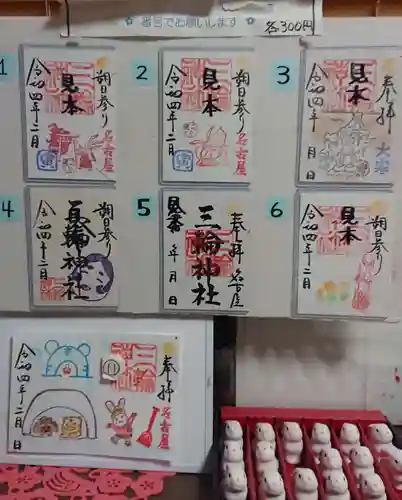 番号でお願いします 各300円
1
朔日参り
見本
令和四年二月
名古屋
2
朔日参り
見本
令和四年二月
名古屋
3
奉拝
見本
令和四年
月 日
大寒
4
朔日参り
三輪神社
令和四年二月
5
奉拝
名古屋
三輪神社
見本
年 月 日
6
朔日参り
見本
令和四年二月
奉拝
名古屋
令和四年二月
日